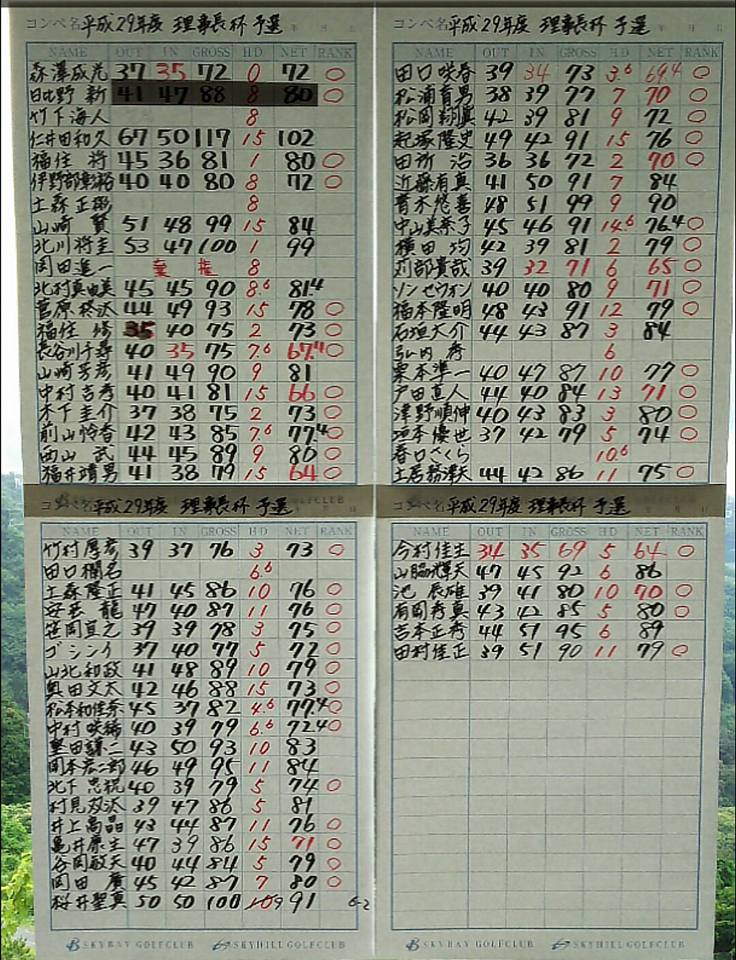 コンペ名 平成29年度 理事長杯 予選 年 月 日
NAME OUT IN GROSS HD NET RANK
森澤成光 37 35 72 0 72 ○
日比野 新 41 47 88 8 80 ○
竹下海人 8
仁井田和久 67 50 117 15 102
福住 将 45 36 81 1 80 ○
伊野部 40 40 80 8 72 ○
土森正 8
山崎 賢 51 48 99 15 84
北川将圭 53 47 100 1 99
岡田進一 棄 権 8
北村真由美 45 45 90 8.6 81.4
菅原 44 49 93 15 78 ○
福住 修 35 40 75 2 73 ○
長谷川千尋 40 35 75 7.6 67.4 ○
山崎 彦 41 49 90 9 81
中村吉秀 40 41 81 15 66 ○
木下圭介 37 38 75 2 73 ○
前山怜香 42 43 85 7.6 77.4 ○
西山 武 44 45 89 9 80 ○
福井靖男 41 38 79 15 64 ○
コンペ名 平成29年度 理事長杯 予選 年 月 日
NAME OUT IN GROSS HD NET RANK
田口咲春 39 34 73 3.6 69.4 ○
松浦有男 38 39 77 7 70 ○
松岡翔 42 39 81 9 72 ○
起塚隆史 49 42 91 15 76 ○
田所 治 36 36 72 2 70 ○
近藤有真 41 50 91 7 84
青木悠喜 48 51 99 9 90
中山美奈子 45 46 91 14.6 76.4 ○
横田 均 42 39 81 2 79 ○
刈部貴哉 39 32 71 6 65 ○
ソン セウォン 40 40 80 9 71 ○
福本隆明 48 43 91 12 79 ○
石垣大介 44 43 87 3 84
弘内 6
栗本準一 40 47 87 10 77 ○
戸田直人 44 40 84 13 71 ○
津野順伸 40 43 83 3 80 ○
垣本優也 37 42 79 5 74 ○
春口さくら 10.6
土居 44 42 86 11 75 ○
コンペ名 平成29年度 理事長杯 予選 SKYHILL GOLFCLUB 年 月 日
NAME OUT IN GROSS HD NET RANK
竹村厚彦 39 37 76 3 73 ○
田口 6.6
土森隆正 41 45 86 10 76 ○
安芸 龍 47 40 87 11 76 ○
笹岡直之 39 39 78 3 75 ○
ゴ シンイク 37 40 77 5 72 ○
山北和政 41 48 89 10 79 ○
奥田文太 42 46 88 15 73 ○
松本和佳奈 45 37 82 4.6 77.4 ○
中村咲稀 40 39 79 6.6 72.4 ○
堅田謙二 43 50 93 10 83
岡本宏二郎 46 49 95 11 84
北下忠祝 40 39 79 5 74 ○
村見 39 47 86 5 81
井上高晶 43 44 87 11 76 ○
亀井康生 47 39 86 15 71 ○
谷岡敏夫 40 44 84 5 79 ○
岡田 廣 45 42 87 7 80 ○
桜井聖真 50 50 100 9 91
6-2
SKYBAY GOLFCLUB SKYHILL GOLFCLUB
コンペ名 平成29年度 理事長杯 予選 年 月 日
NAME OUT IN GROSS HD NET RANK
今村佳主 34 35 69 5 64 ○
山脇輝夫 47 45 92 6 86
池 辰雄 39 41 80 10 70 ○
有岡秀真 43 42 85 5 80 ○
吉本正秀 44 51 95 6 89
田村佳正 39 51 90 11 79 ○
SKYBAY GOLFCLUB SKYHILL GOLFCLUB